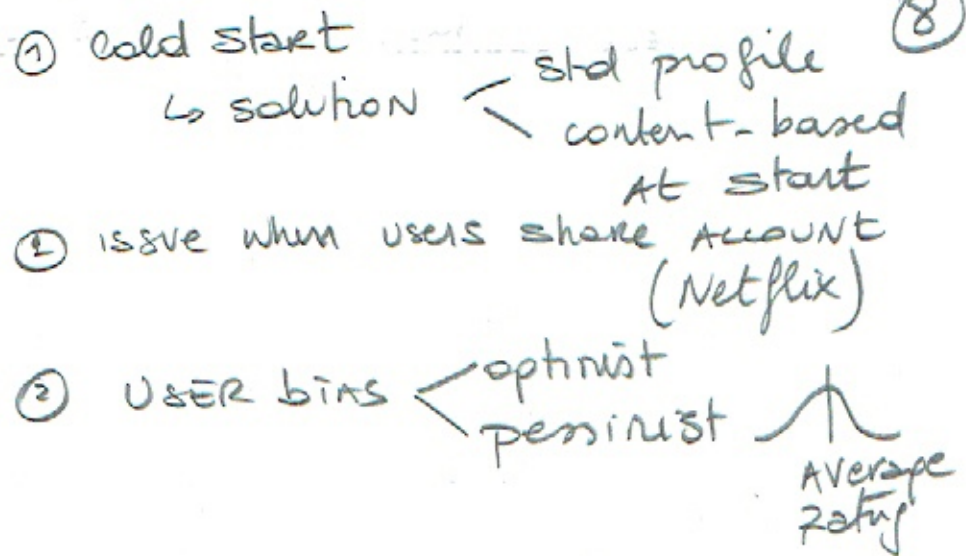 8
① Cold start
↳ solution < std profile
content-based
At start
① issue when users share Account
(Netflix)
② USER biAS < optimist
pessimist
Average
Rating